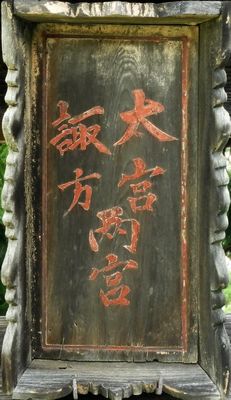 大宮両宮
諏方